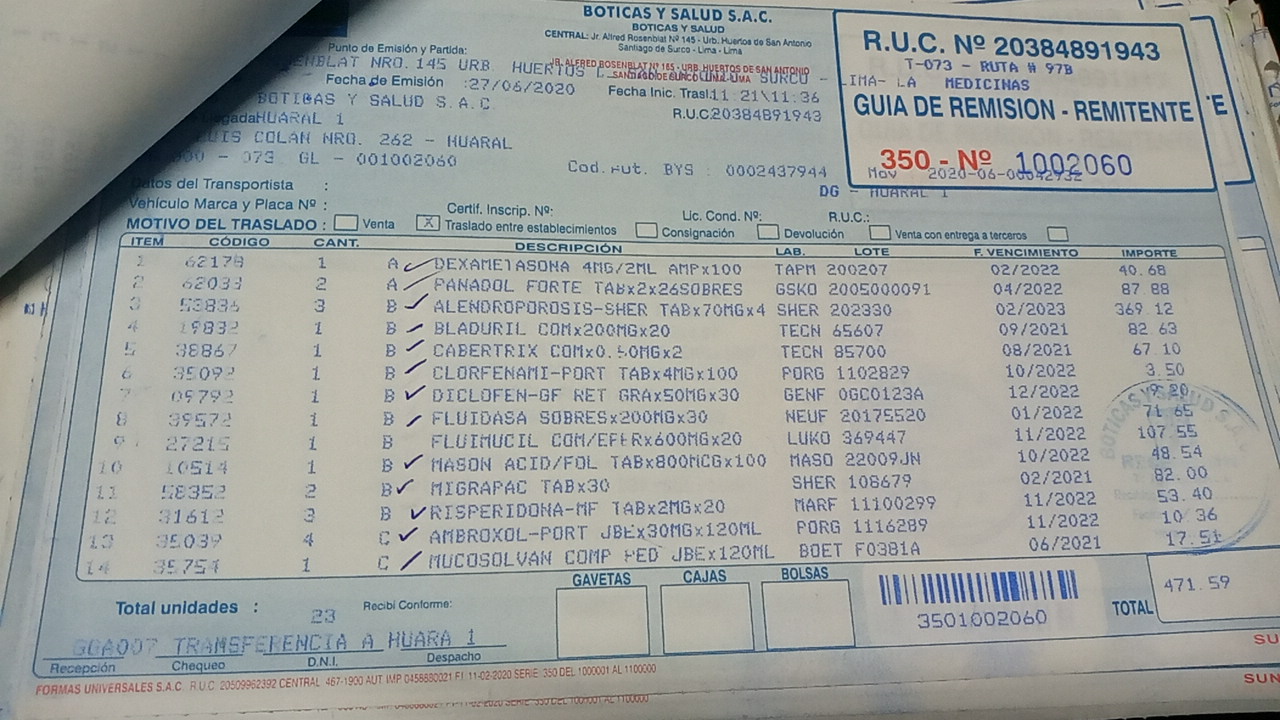 BOTICAS Y SALUD S.A.C.
BOTICAS Y SALUD
CENTRAL: Jr. Alfred Rosenblat Nº 145 - Urb. Huertos de San Antonio
Santiago de Surco - Lima - Lima
R.U.C. Nº 20384891943
T-073 - RUTA # 97B
LIMA- LA MEDICINAS
GUIA DE REMISION - REMITENTE
350 - Nº 1002060
Mov 2020-06-00042932
DG - HUARAL 1
Punto de Emisión y Partida:
ENBLAT NRO. 145 URB. HUERTOS SURCO -
JR. ALFRED ROSENBLAT Nº 165 - URB. HUERTOS DE SAN ANTONIO
Fecha de Emisión :27/06/2020 Fecha Inic. Trasl. 11:21\11:36
BOTICAS Y SALUD S.A.C. R.U.C. 20384891943
HUARAL 1
LUIS COLAN NRO. 262 - HUARAL
- 073 GL - 001002060 Cod. Aut. BYS : 0002437944
Datos del Transportista :
Vehículo Marca y Placa Nº : Certif. Inscrip. Nº: Lic. Cond. Nº: R.U.C.:
MOTIVO DEL TRASLADO : Venta X Traslado entre establecimientos Consignación Devolución Venta con entrega a terceros
ITEM CÓDIGO CANT. DESCRIPCIÓN LAB. LOTE F. VENCIMIENTO IMPORTE
1 62178 1 A DEXAMETASONA 4MG/2ML AMPx100 TAPM 200207 02/2022 40.68
2 62033 2 A PANADOL FORTE TABx2x26SOBRES GSKO 2005000091 04/2022 87 88
3 53836 3 B ALENDROPOROSIS-SHER TABx70MGx4 SHER 202330 02/2023 369 12
4 19832 1 B BLADURIL COMx200MGx20 TECN 65607 09/2021 82 63
5 38867 1 B CABERTRIX COMx0.50MGx2 TECN 85700 08/2021 67.10
6 35092 1 B CLORFENAMI-PORT TABx4MGx100 PORG 1102829 10/2022 3.50
7 09792 1 B DICLOFEN-GF RET GRAx50MGx30 GENF 0GC0123A 12/2022 9.20
8 39572 1 B FLUIDASA SOBRESx200MGx30 NEUF 20175520 01/2022 71 65
9 27215 1 B FLUIMUCIL COM/EFERx600MGx20 LUKO 369447 11/2022 107.55
10 10514 1 B MASON ACID/FOL TABx800MCGx100 MASO 22009JN 10/2022 48.54
11 58352 2 B MIGRAPAC TABx30 SHER 108679 02/2021 82.00
12 31612 3 B RISPERIDONA-MF TABx2MGx20 MARF 11100299 11/2022 53.40
13 35039 4 C AMBROXOL-PORT JBEx30MGx120ML PORG 1116289 11/2022 10 36
14 35754 1 C MUCOSOLVAN COMP PED JBEx120ML BOET F0381A 06/2021 17.51
BOTICAS Y SALUD S.A.
GAVETAS CAJAS BOLSAS
Total unidades : 23 Recibí Conforme:
3501002060
TOTAL 471.59
GGA007 TRANSFERENCIA A HUARA 1
Recepción Chequeo D.N.I. Despacho
FORMAS UNIVERSALES S.A.C. R.U.C. 20509962392 CENTRAL 467-1900 AUT. IMP 0456680021 F.I. 11-02-2020 SERIE: 350 DEL 1000001 AL 1100000